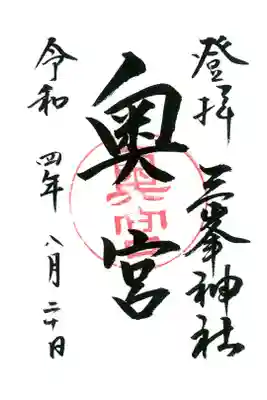 登拝 三峯神社
奥宮
令和 四年 八月 二十日